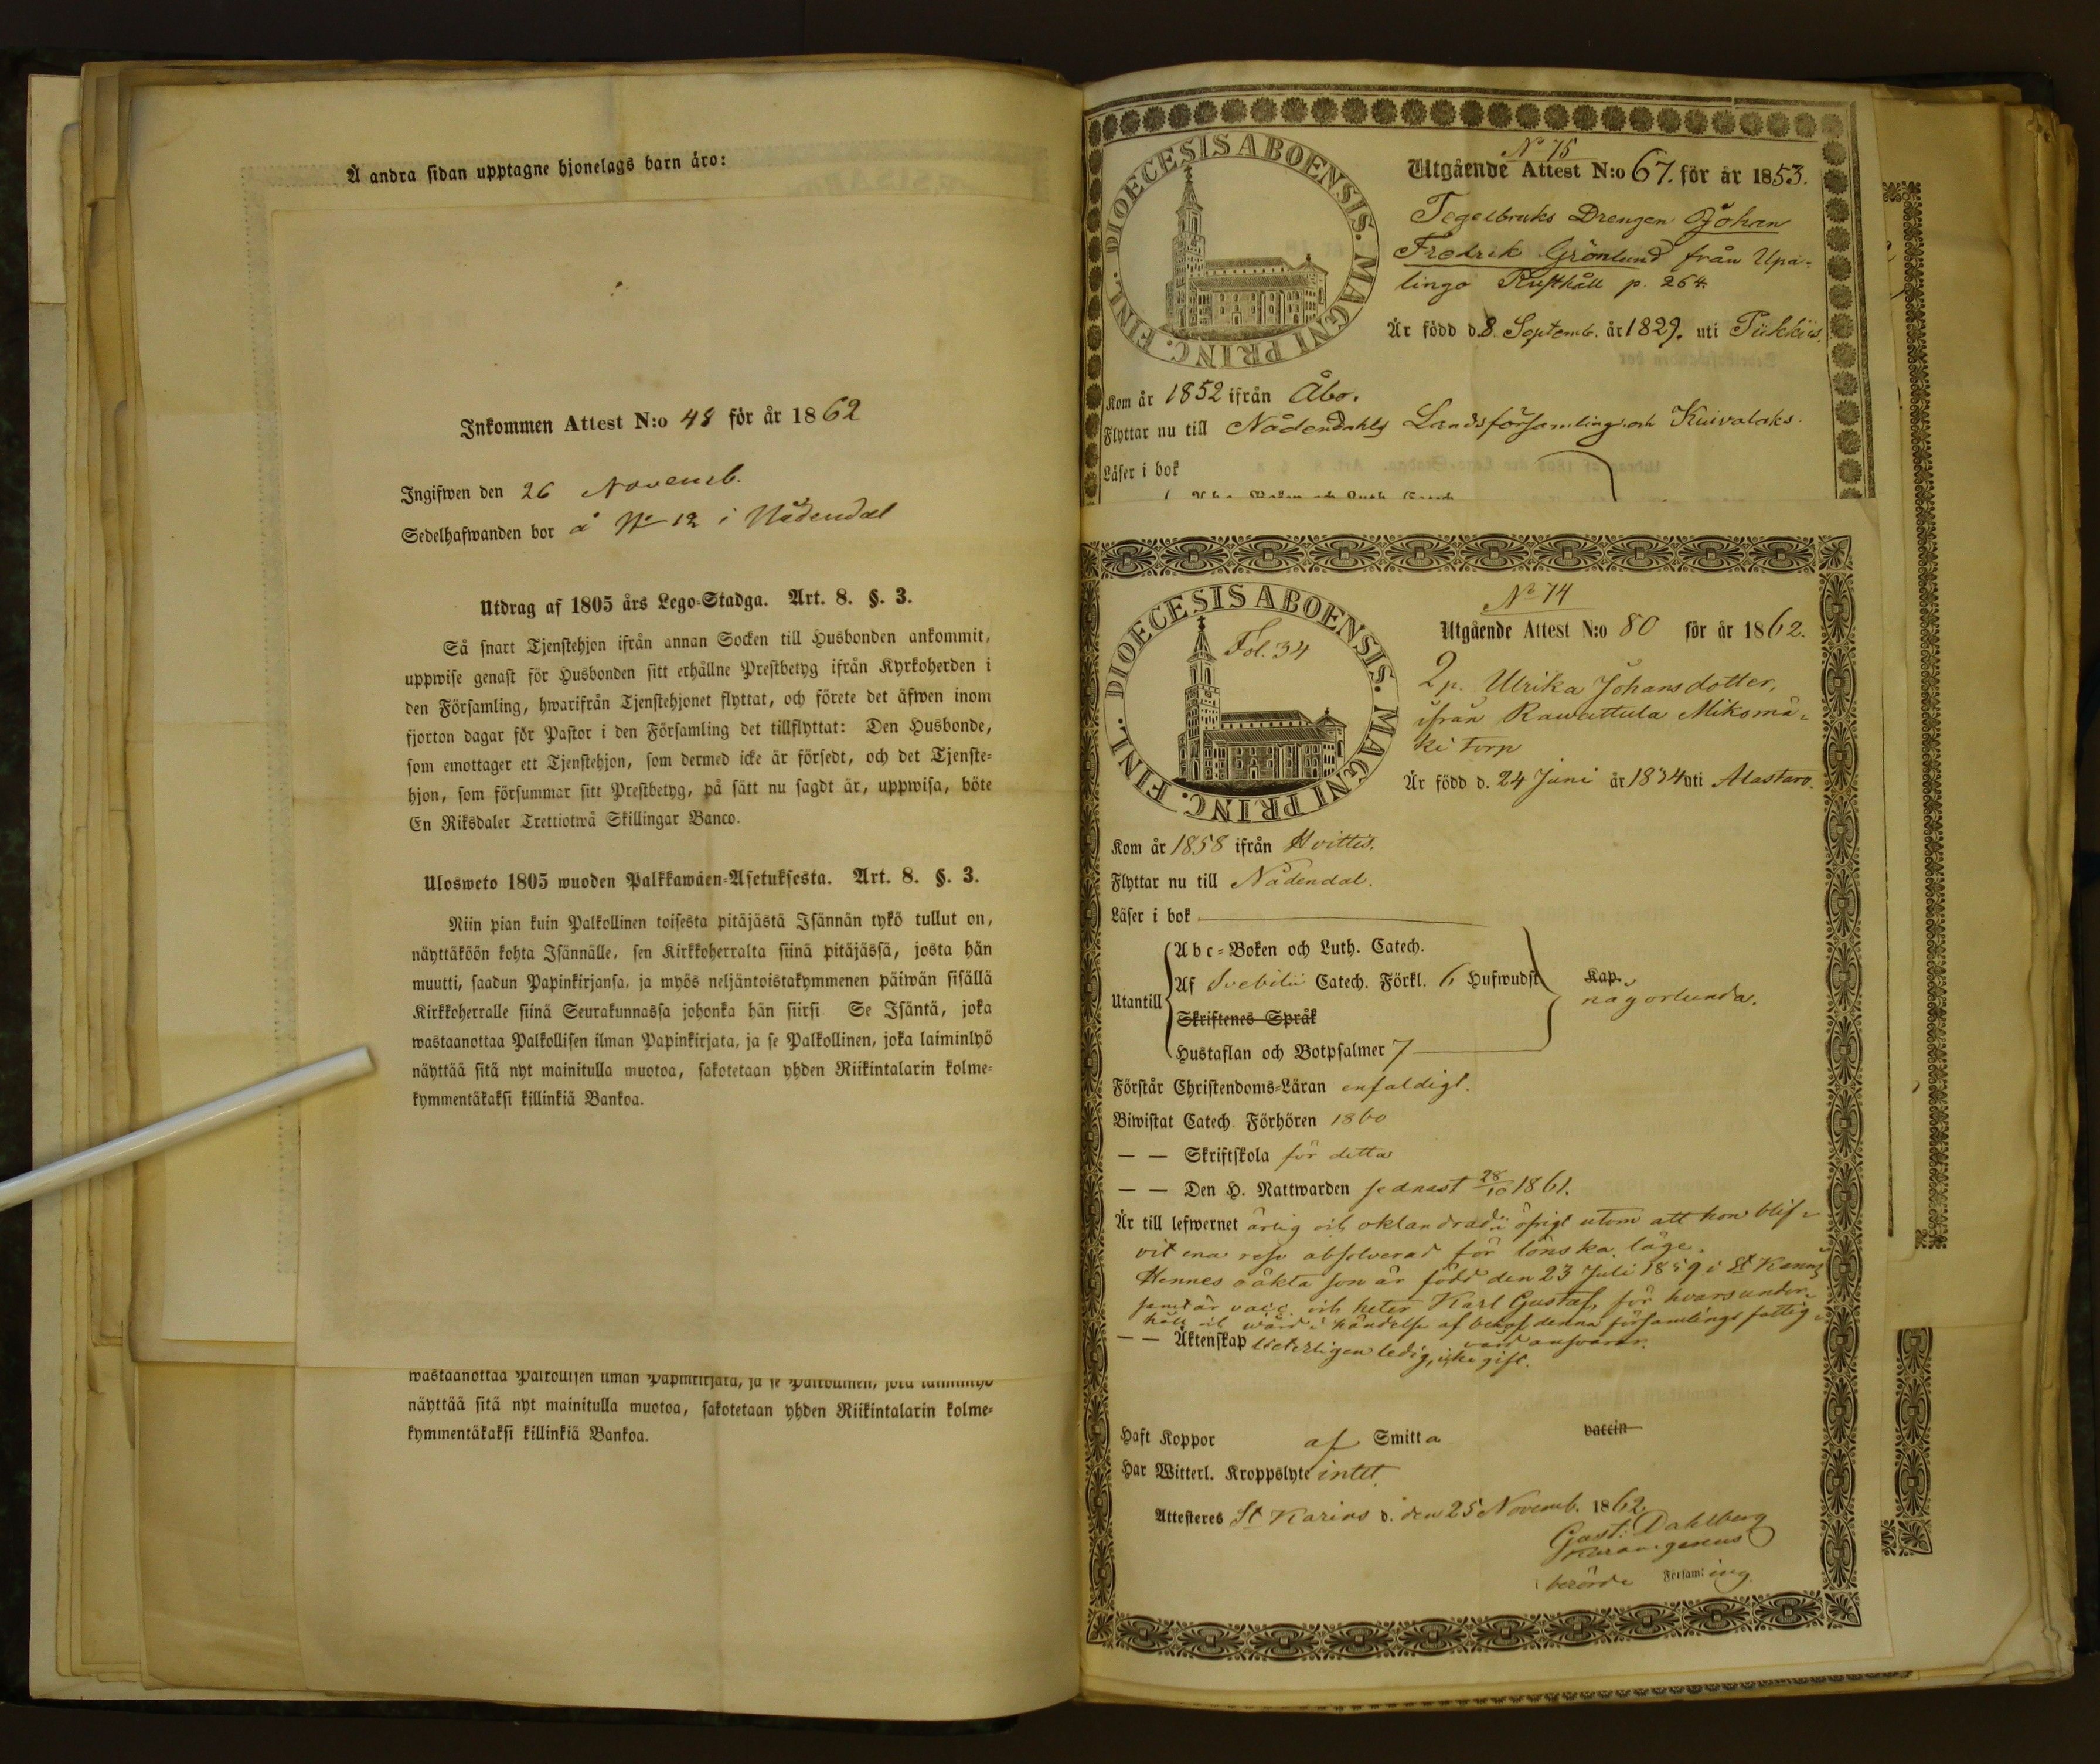 Å andra sidan upptagne hjonelags barn äro:
Inkommen Attest N:o 48 för år 1862
Ingifwen den 26 Novemb.
Sedelhafwanden bor å No 12 i Nådendal
Utdrag af 1805 års Lego-Stadga. Art. 8. §. 3.
Så snart Tjenstehjon ifrån annan Socken till Husbonden ankommit,
uppwise genast för Husbonden sitt erhållne Prestbetyg ifrån Kyrkoherden i
den Församling, hwarifrån Tjenstehjonet flyttat, och förete det äfwen inom
fjorton dagar för Pastor i den Församling det tillflyttat: Den Husbonde,
som emottager ett Tjenstehjon, som dermed icke är försedt, och det Tjenste-
hjon, som försummar sitt Prestbetyg, på sätt nu sagdt är, uppwisa, böte
En Riksdaler Trettiotwå Skillingar Banco.
Ulosweto 1805 wuoden Palkkawäen-Asetuksesta. Art. 8. §. 3.
Niin pian kuin Palkollinen toisesta pitäjästä Isännän tykö tullut on,
näyttäköön kohta Isännälle, sen Kirkkoherralta siinä pitäjässä, josta hän
muutti, saadun Papinkirjansa, ja myös neljäntoistakymmenen päiwän sisällä
Kirkkoherralle siinä Seurakunnassa johonka hän siirsi Se Isäntä, joka
wastaanottaa Palkollisen ilman Papinkirjata, ja se Palkollinen, joka laiminlyö
näyttää sitä nyt mainitulla muotoa, sakotetaan yhden Riikintalarin kolme-
kymmentäkaksi killinkiä Bankoa.
wastaanottaa Palkollisen ilman Papinkirjata, ja se Palkollinen, joka laiminlyö
näyttää sitä nyt mainitulla muotoa, sakotetaan yhden Riikintalarin kolme-
kymmentäkaksi killinkiä Bankoa.
DIOECESIS ABOENSIS. MAGNI PRINC. FINL.
No 75
Utgående Attest N:o 67. för år 1853.
Tegelbruks Drengen Johan
Fredrik Grönlund från Upa-
lingo Rusthåll p. 264.
Är född d. 8. Septemb. år 1829. uti Piikkiis.
Kom år 1852 ifrån Åbo.
Flyttar nu till Nådendahls Landsförsamling och Kuivalaks.
Läser i bok
DIOECESIS ABOENSIS. MAGNI PRINC. FINL.
Fol. 34
No 74
Utgående Attest N:o 80 för år 1862.
Qp. Ulrika Johansdotter,
ifrån Rawattula Mikomä-
ki torp
Är född d. 24 Juni år 1834 uti Alastaro.
Kom år 1858 ifrån Hvittis.
Flyttar nu till Nådendal.
Läser i bok
Utantill
Abc-Boken och Luth. Catech.
Af Svebilii Catech. Förkl. 6 Hufwudst
Skriftenes Språk
Hustaflan och Botpsalmer 7
Kap.
någorlunda.
Förstår Christendoms-Läran enfaldigt.
Biwistat Catech. Förhören 1860
— — Skriftskola för detta
— — Den H. Nattwarden sednast 28/10 1861.
Är till lefwernet ärlig och oklandrad i öfrigt utom att hon blif-
vit ena resa absolverad för lönska läge.
Hennes oäkta son är född den 23 Juli 1859 i St Karins
samt är vacc. och heter Karl Gustaf, för hvars under-
håll och wård i händelse af behof denna församlings fattig-
vård ansvarar.
— — Äktenskap ledig, icke gift.
Haft Koppor af Smitta vaccin
Har Witterl. Kroppslyte intet
Attesteres St Karins d. den 25 Novemb. 1862.
Gust: Dahlberg
berörde Försam: ing